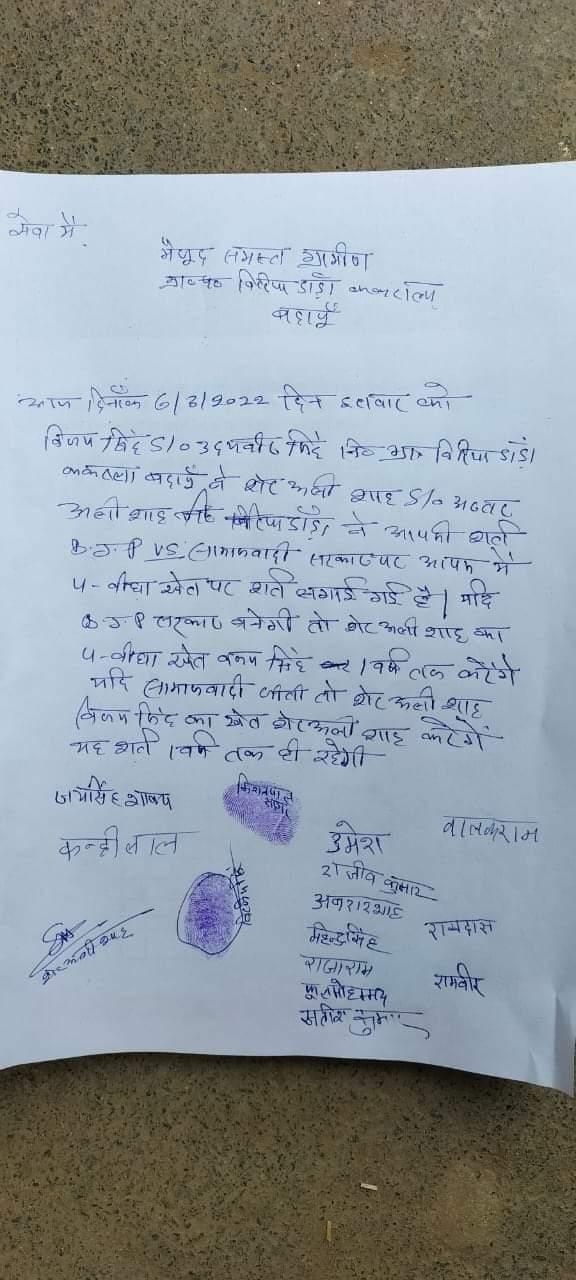 सेवा में,
मौजूद समस्त ग्रामीण
ग्राम विरिया डांडी ककराला
बदायूँ
आज दिनाँक 6/3/2022 दिन इतवार को
विजय सिंह S/o उदयवीर सिंह नि० ग्राम विरिया डांडी
ककराला बदायूँ ने शेर अली शाह S/o अख्तर
अली शाह नि० विरिया डांडी ने आपसी शर्त
B.J.P VS. समाजवादी सरकार पर आपस में
4-बीघा खेत पर शर्त लगाई गई है। यदि
B.J.P सरकार बनेगी तो शेर अली शाह का
4-बीघा खेत विजय सिंह 1 वर्ष तक करेंगे
यदि समाजवादी जीती तो शेर अली शाह
विजय सिंह का खेत शेर अली शाह करेंगें
यह शर्त 1 वर्ष तक ही रहेगी
जयसिंह शाक्य
किशनपाल
कन्हीलाल
उमेश
वालकराम
राजीव कुमार
अबरारशाह
रामदास
महेन्द्रसिंह
शेर अली शाह
राजाराम
रामवीर
फूल मोहम्मद
सतीश कुमार